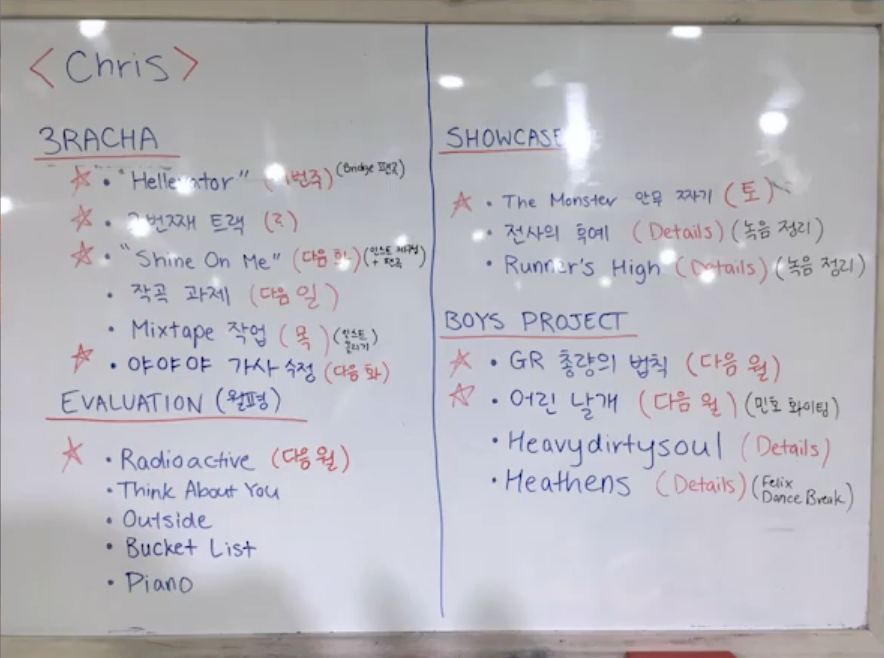 <Chris>
3RACHA
• "Hellevator" (이번주) (Bridge 편곡)
• 번째 트랙
• "Shine On Me" (다음 화) (인스트 재구성 + 편곡)
• 작곡 과제 (다음 일)
• Mixtape 작업 (목) (인스트 고르기)
• 야야야 가사 수정 (다음 화)
EVALUATION (월평)
• Radioactive (다음 월)
• Think About You
• Outside
• Bucket List
• Piano
SHOWCASE
• The Monster 안무 짜기 (토)
• 전사의 후예 (Details) (녹음 정리)
• Runner's High (Details) (녹음 정리)
BOYS PROJECT
• GR 총량의 법칙 (다음 월)
• 어린 날개 (다음 월) (민호 화이팅)
• Heavydirtysoul (Details)
• Heathens (Details) (Felix Dance Break)